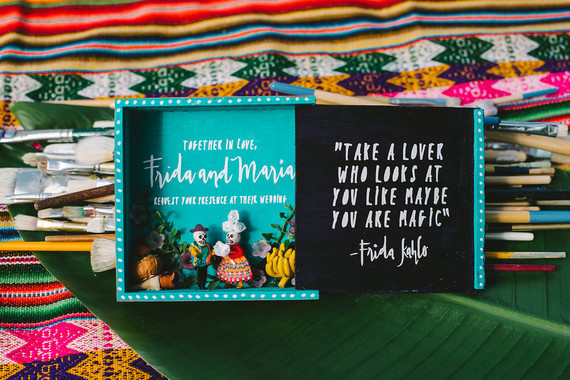 TOGETHER IN LOVE,
Frida and Maria
REQUEST YOUR PRESENCE AT THEIR WEDDING
"TAKE A LOVER
WHO LOOKS AT
YOU LIKE MAYBE
YOU ARE MAGIC"
-Frida Kahlo